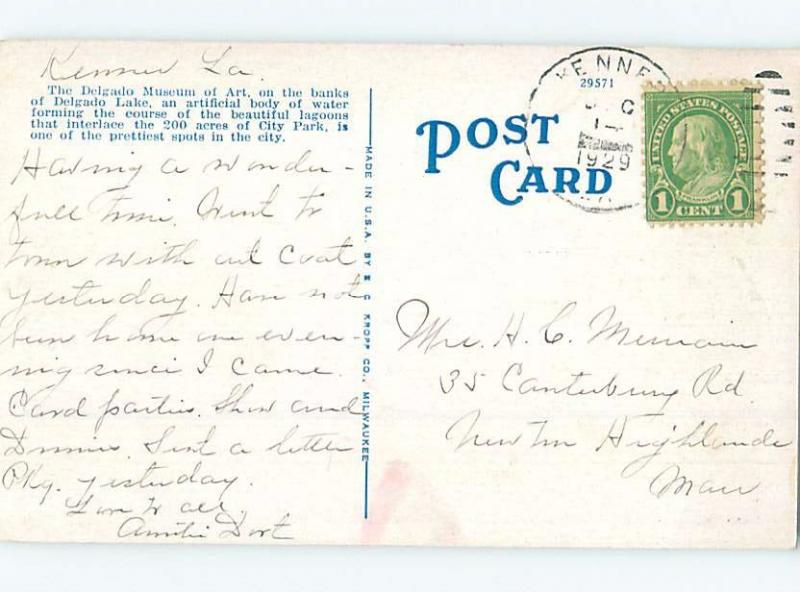 Kenner La.
The Delgado Museum of Art, on the banks
of Delgado Lake, an artificial body of water
forming the course of the beautiful lagoons
that interlace the 200 acres of City Park, is
one of the prettiest spots in the city.
Having a wonder-
full time. Went to
town with out coat
yesterday. Have not
been home one even-
ning since I came.
Card parties. Show and
Dinners. Sent a letter
Pkg. yesterday.
Love to all,
Auntie Dort
MADE IN U.S.A. BY E. C. KROPP CO., MILWAUKEE
29571
POST
CARD
KENNE
14
1929
UNITED STATES POSTAGE
FRANKLIN
1 CENT 1
Mrs. H. C. Merriam
35 Canterbury Rd.
Newton Highlands
Mass